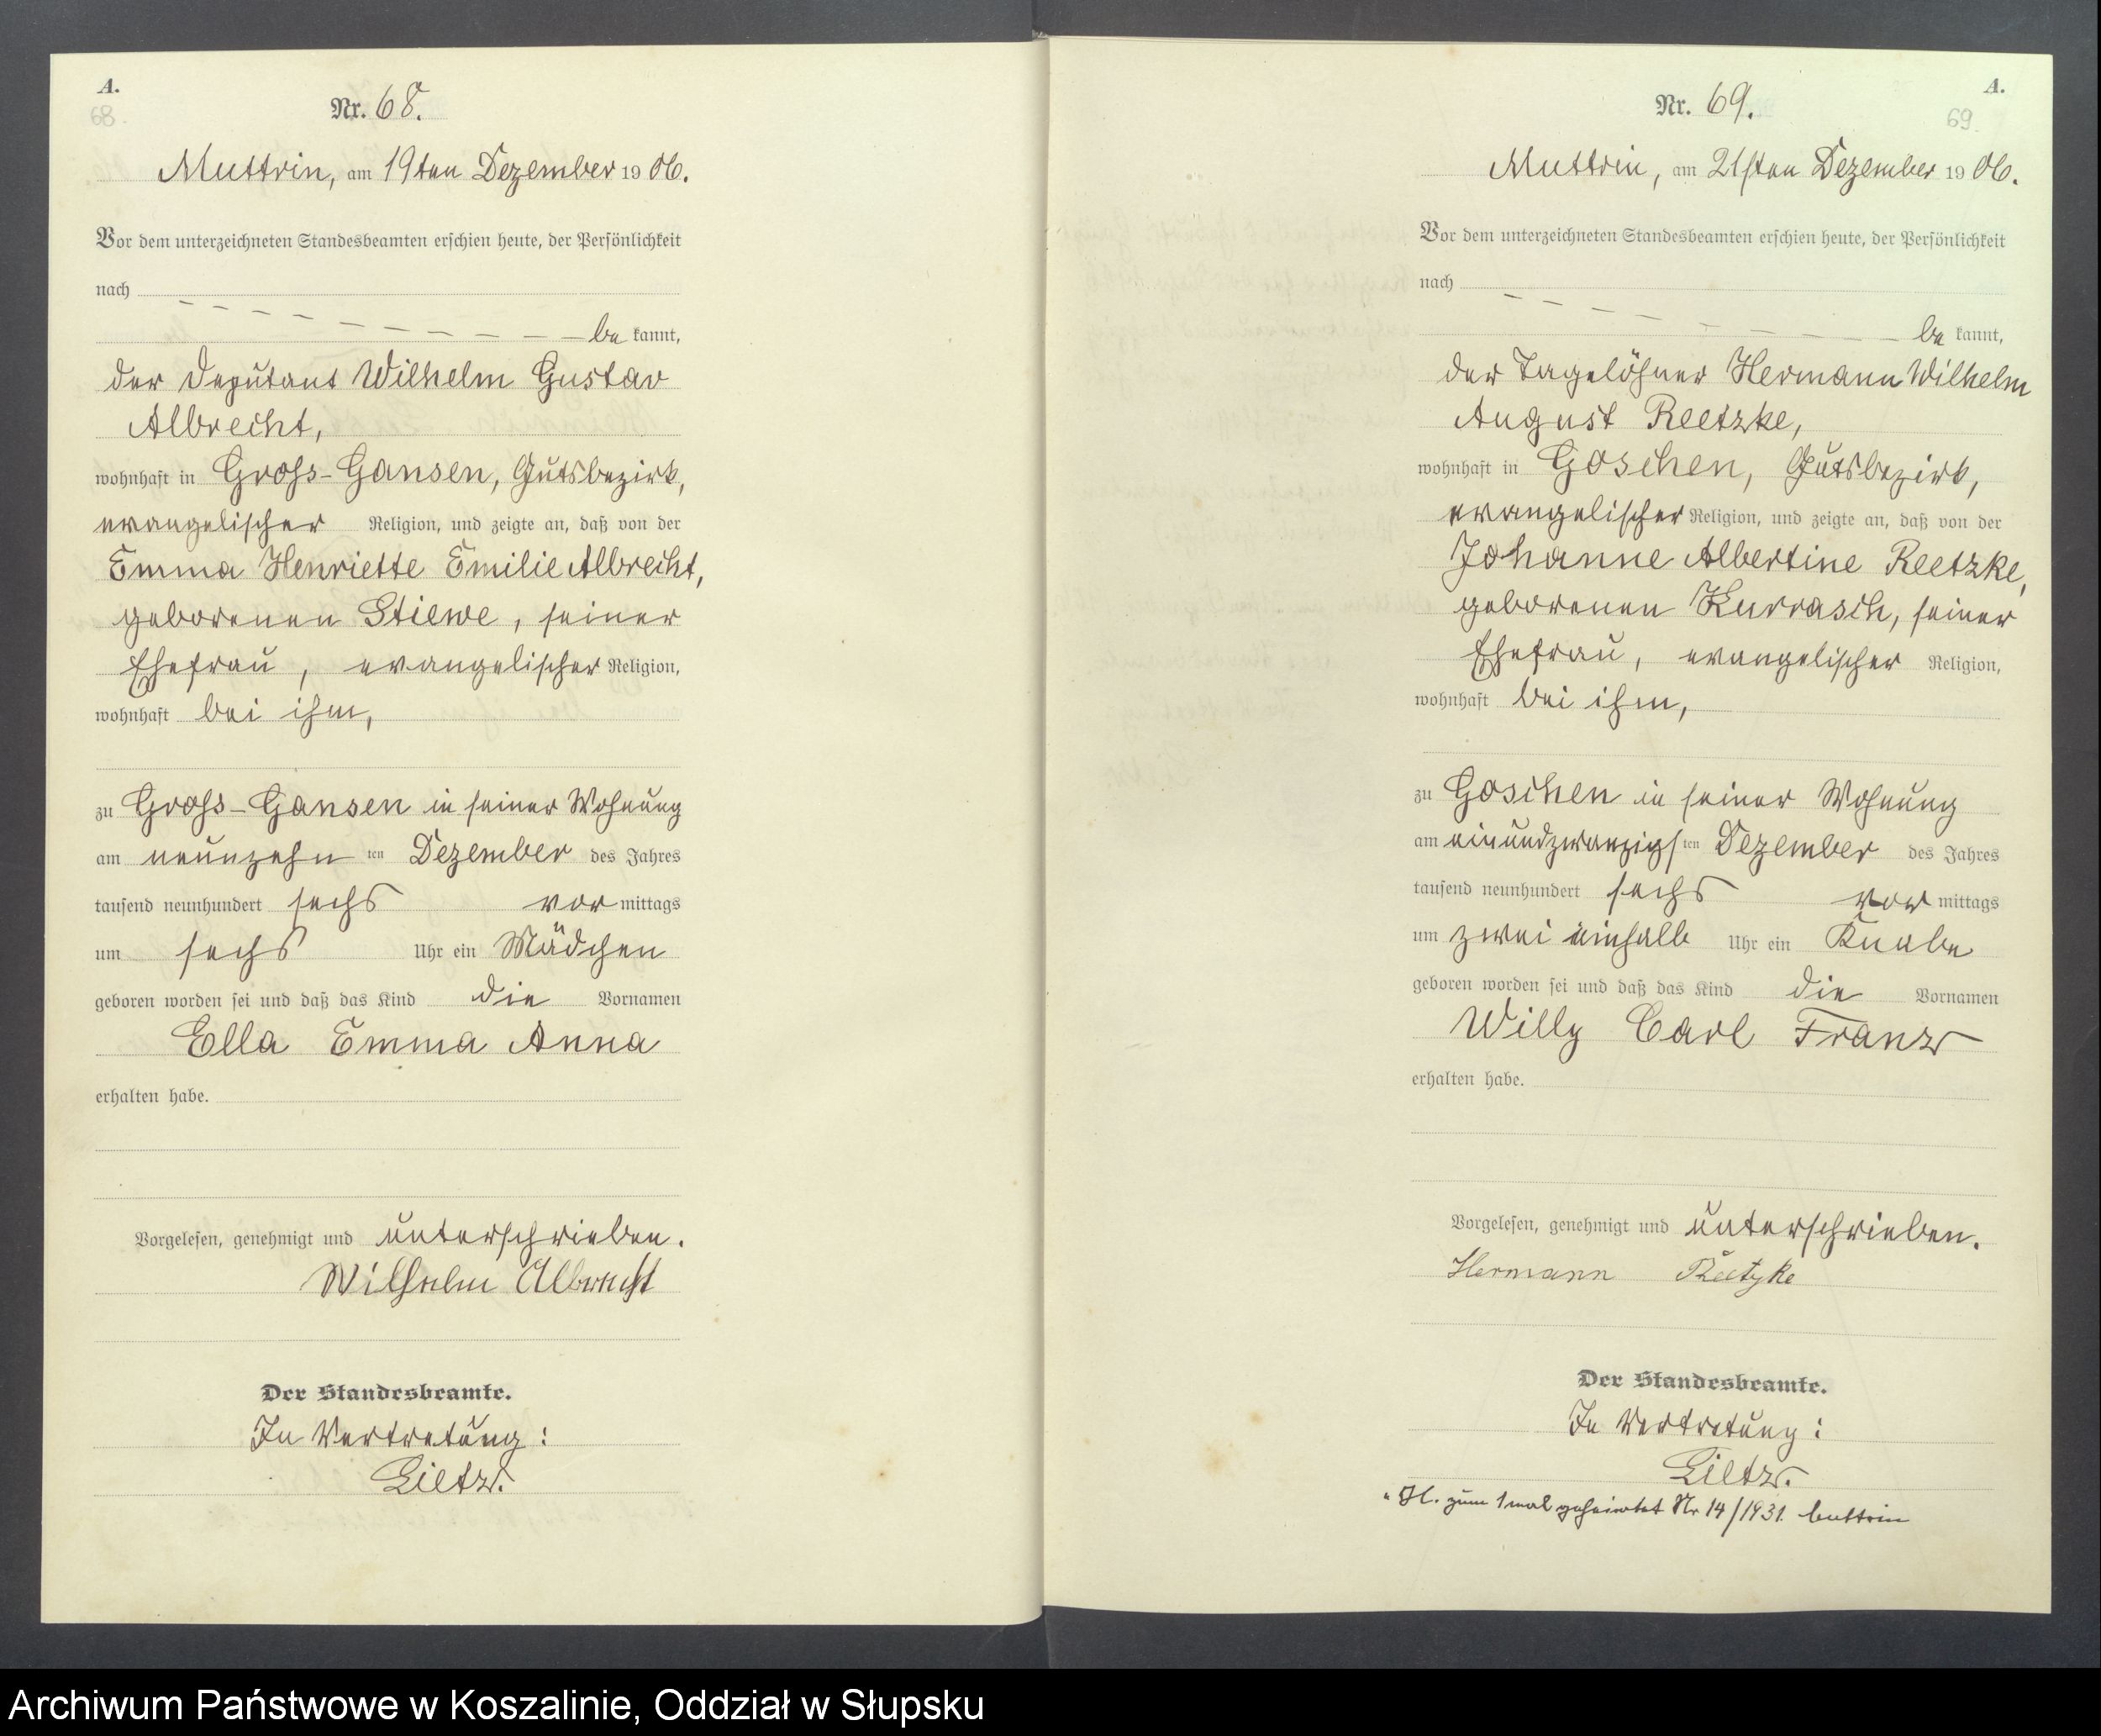 A.
68.
Nr. 68.
Muttrin, am 19ten Dezember 1906.
Vor dem unterzeichneten Standesbeamten erschien heute, der Persönlichkeit
nach
be kannt,
der Deputant Wilhelm Gustav
Albrecht,
wohnhaft in Groß-Gansen, Gutsbezirk,
evangelischer Religion, und zeigte an, daß von der
Emma Henriette Emilie Albrecht,
geborenen Stiewe, seiner
Ehefrau, evangelischer Religion,
wohnhaft bei ihm,
zu Groß-Gansen in seiner Wohnung
am neunzehn ten Dezember des Jahres
tausend neunhundert sechs vor mittags
um sechs Uhr ein Mädchen
geboren worden sei und daß das Kind die Vornamen
Ella Emma Anna
erhalten habe.
Vorgelesen, genehmigt und unterschrieben.
Wilhelm Albrecht
Der Standesbeamte.
In Vertretung:
Lietz.
A.
69.
Nr. 69.
Muttrin, am 21sten Dezember 1906.
Vor dem unterzeichneten Standesbeamten erschien heute, der Persönlichkeit
nach
be kannt,
der Tagelöhner Hermann Wilhelm
August Reetzke,
wohnhaft in Goschen, Gutsbezirk,
evangelischer Religion, und zeigte an, daß von der
Johanne Albertine Reetzke,
geborenen Kurrasch, seiner
Ehefrau, evangelischer Religion,
wohnhaft bei ihm,
zu Goschen in seiner Wohnung
am einundzwanzigs ten Dezember des Jahres
tausend neunhundert sechs vor mittags
um zwei einhalb Uhr ein Knabe
geboren worden sei und daß das Kind die Vornamen
Willy Carl Franz
erhalten habe.
Vorgelesen, genehmigt und unterschrieben.
Hermann Reetzke
Der Standesbeamte.
In Vertretung:
Lietz.
zum 1 mal geheiratet Nr 14/1931.
Archiwum Państwowe w Koszalinie, Oddział w Słupsku